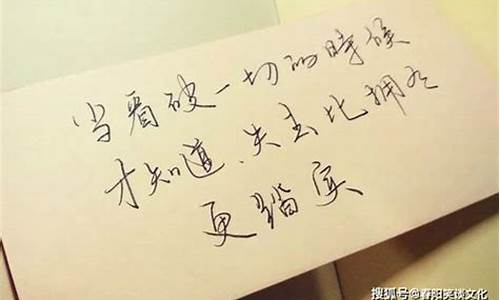 当看破一切的時候
才知道、失去比拥有
更踏实
搜狐号@春阳笑谈文化